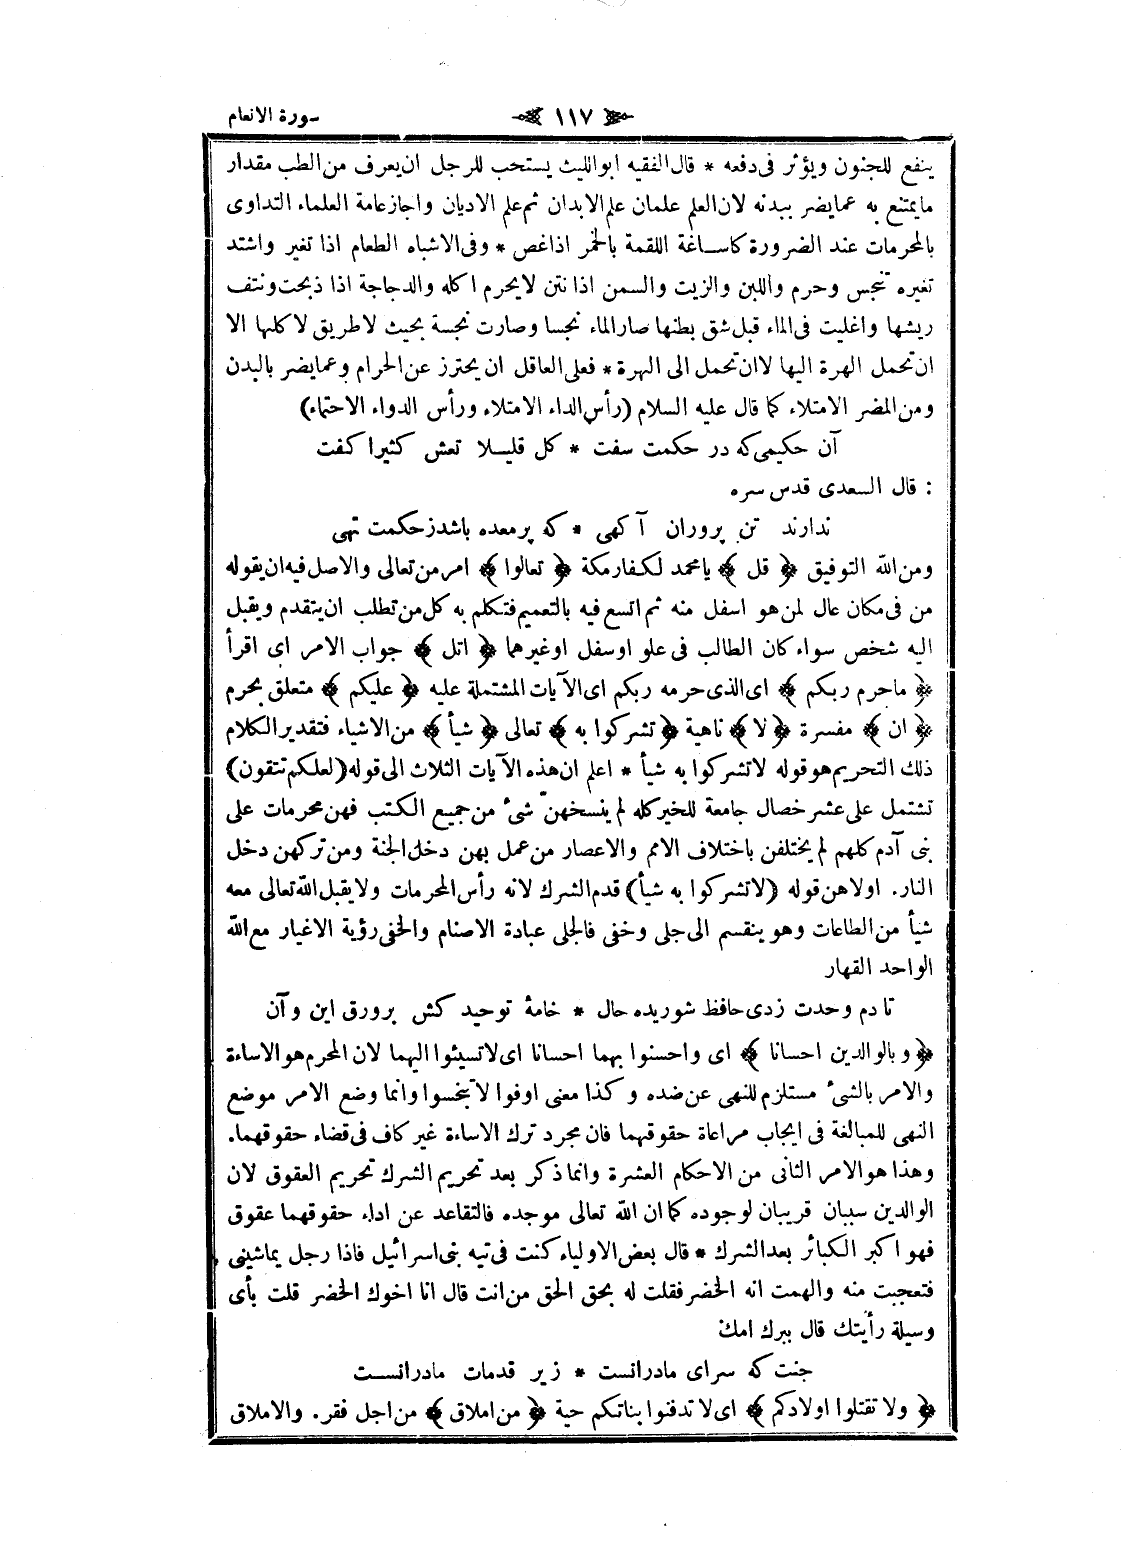 سورة الانعام ١١٧
ينفع للجنون ويؤثر فى دفعه * قال الفقيه ابو الليث يستحب للرجل ان يعرف من الطب مقدار
ما يمتنع به عما يضر ببدنه لان العلم علمان علم الابدان ثم علم الاديان واجاز عامة العلماء التداوى
بالمحرمات عند الضرورة كاساغة اللقمة بالخمر اذا غص * وفى الاشباه الطعام اذا تغير واشتد
تغيره تنجس وحرم واللبن والزيت والسمن اذا نتن لا يحرم اكله والدجاجة اذا ذبحت ونتف
ريشها واغليت فى الماء قبل شق بطنها صار الماء نجسا وصارت نجسة بحيث لا طريق لاكلها الا
ان تحمل الهرة اليها لا ان تحمل الى الهرة * فعلى العاقل ان يحترز عن الحرام وعما يضر بالبدن
ومن المضر الامتلاء كما قال عليه السلام (رأس الداء الامتلاء ورأس الدواء الاحتماء)
آن حكيمى كه در حكمت سفت * كل قليلا تعش كثيرا كفت
: قال السعدى قدس سره
ندارند تن پروران آكهى * كه پر معده باشد ز حكمت تهى
ومن الله التوفيق ﴿ قل ﴾ يا محمد لكفار مكة ﴿ تعالوا ﴾ امر من تعالى والاصل فيه ان يقوله
من فى مكان عال لمن هو اسفل منه ثم اتسع فيه بالتعميم فتكلم به كل من تطلب ان يتقدم ويقبل
اليه شخص سواء كان الطالب فى علو او سفل او غيرهما ﴿ اتل ﴾ جواب الامر اى اقرأ
﴿ ما حرم ربكم ﴾ اى الذى حرمه ربكم اى الآيات المشتملة عليه ﴿ عليكم ﴾ متعلق بحرم
﴿ ان ﴾ مفسرة ﴿ لا ﴾ ناهية ﴿ تشركوا به ﴾ تعالى ﴿ شيأ ﴾ من الاشياء فتقدير الكلام
ذلك التحريم هو قوله لا تشركوا به شيأ * اعلم ان هذه الآيات الثلاث الى قوله (لعلكم تتقون)
تشتمل على عشر خصال جامعة للخير كله لم ينسخهنّ شىء من جميع الكتب فهن محرمات على
بنى آدم كلهم لم يختلفن باختلاف الامم والاعصار من عمل بهن دخل الجنة ومن تركهن دخل
النار. اولاهن قوله (لا تشركوا به شيأ) قدم الشرك لانه رأس المحرمات ولا يقبل الله تعالى معه
شيأ من الطاعات وهو ينقسم الى جلى وخفى فالجلى عبادة الاصنام والخفى رؤية الاغيار مع الله
الواحد القهار
تا دم وحدت زدى حافظ شوريده حال * خامۀ توحيد كش بر ورق اين وآن
﴿ وبالوالدين احسانا ﴾ اى واحسنوا بهما احسانا اى لا تسيئوا اليهما لان المحرم هو الاساءة
والامر بالشىء مستلزم للنهى عن ضده وكذا معنى اوفوا لا تبخسوا وانما وضع الامر موضع
النهى للمبالغة فى ايجاب مراعاة حقوقهما فان مجرد ترك الاساءة غير كاف فى قضاء حقوقهما.
وهذا هو الامر الثانى من الاحكام العشرة وانما ذكر بعد تحريم الشرك تحريم العقوق لان
الوالدين سببان قريبان لوجوده كما ان الله تعالى موجده فالتقاعد عن اداء حقوقهما عقوق
فهو اكبر الكبائر بعد الشرك * قال بعض الاولياء كنت فى تيه بنى اسرائيل فاذا رجل يماشينى
فتعجبت منه والهمت انه الخضر فقلت له بحق الحق من انت قال انا اخوك الخضر قلت بأى
وسيلة رأيتك قال ببرك امك
جنت كه سراى مادرانست * زير قدمات مادرانست
﴿ ولا تقتلوا اولادكم ﴾ اى لا تدفنوا بناتكم حية ﴿ من املاق ﴾ من اجل فقر. والاملاق